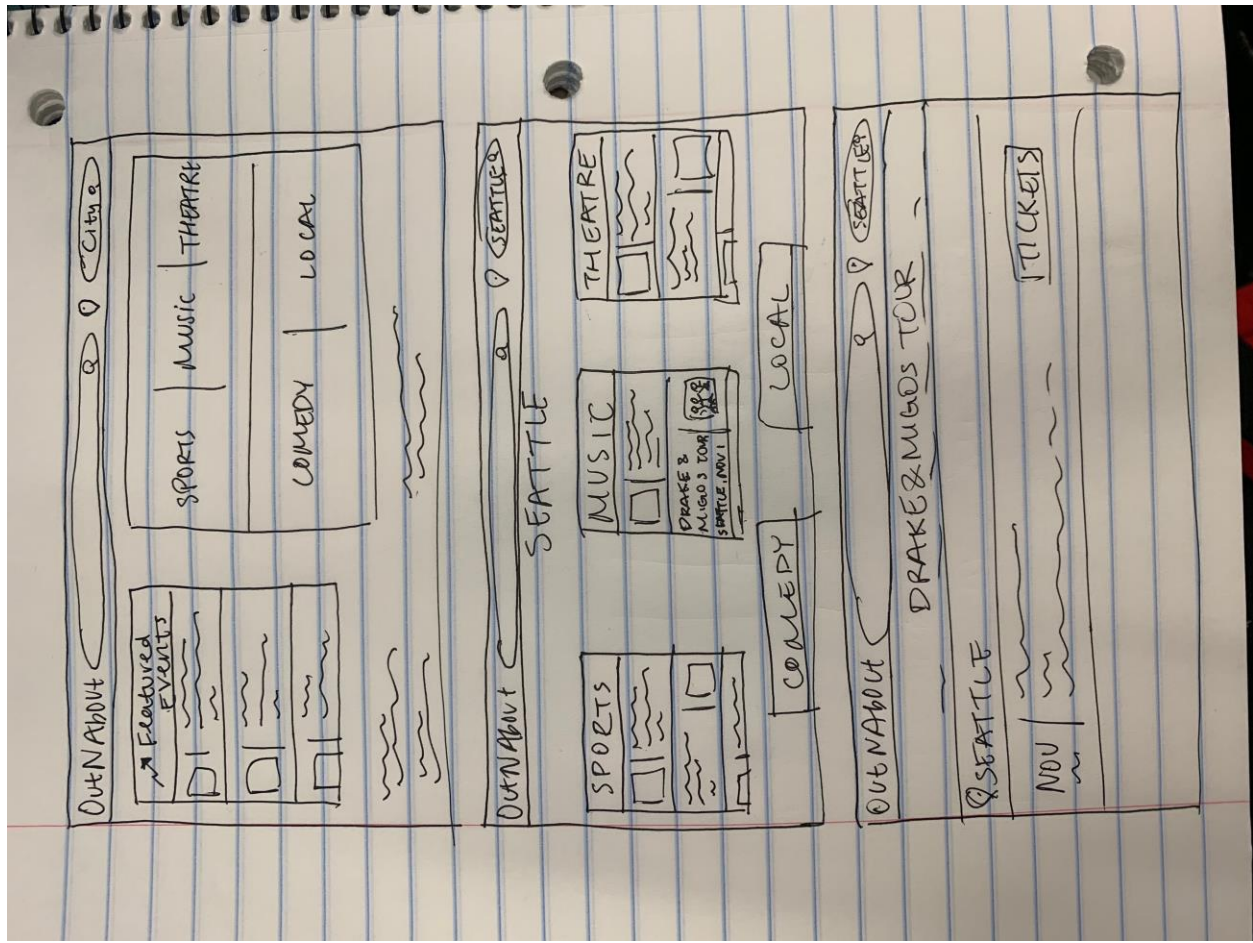 OutNAbout City
Featured
Events
SPORTS MUSIC THEATRE
COMEDY LOCAL
OutNAbout SEATTLE
SEATTLE
SPORTS MUSIC THEATRE
DRAKE &
MIGOS TOUR
SEATTLE, NOV 1
COMEDY LOCAL
OUTNABOUT SEATTLE
DRAKE & MIGOS TOUR
SEATTLE
NOV TICKETS